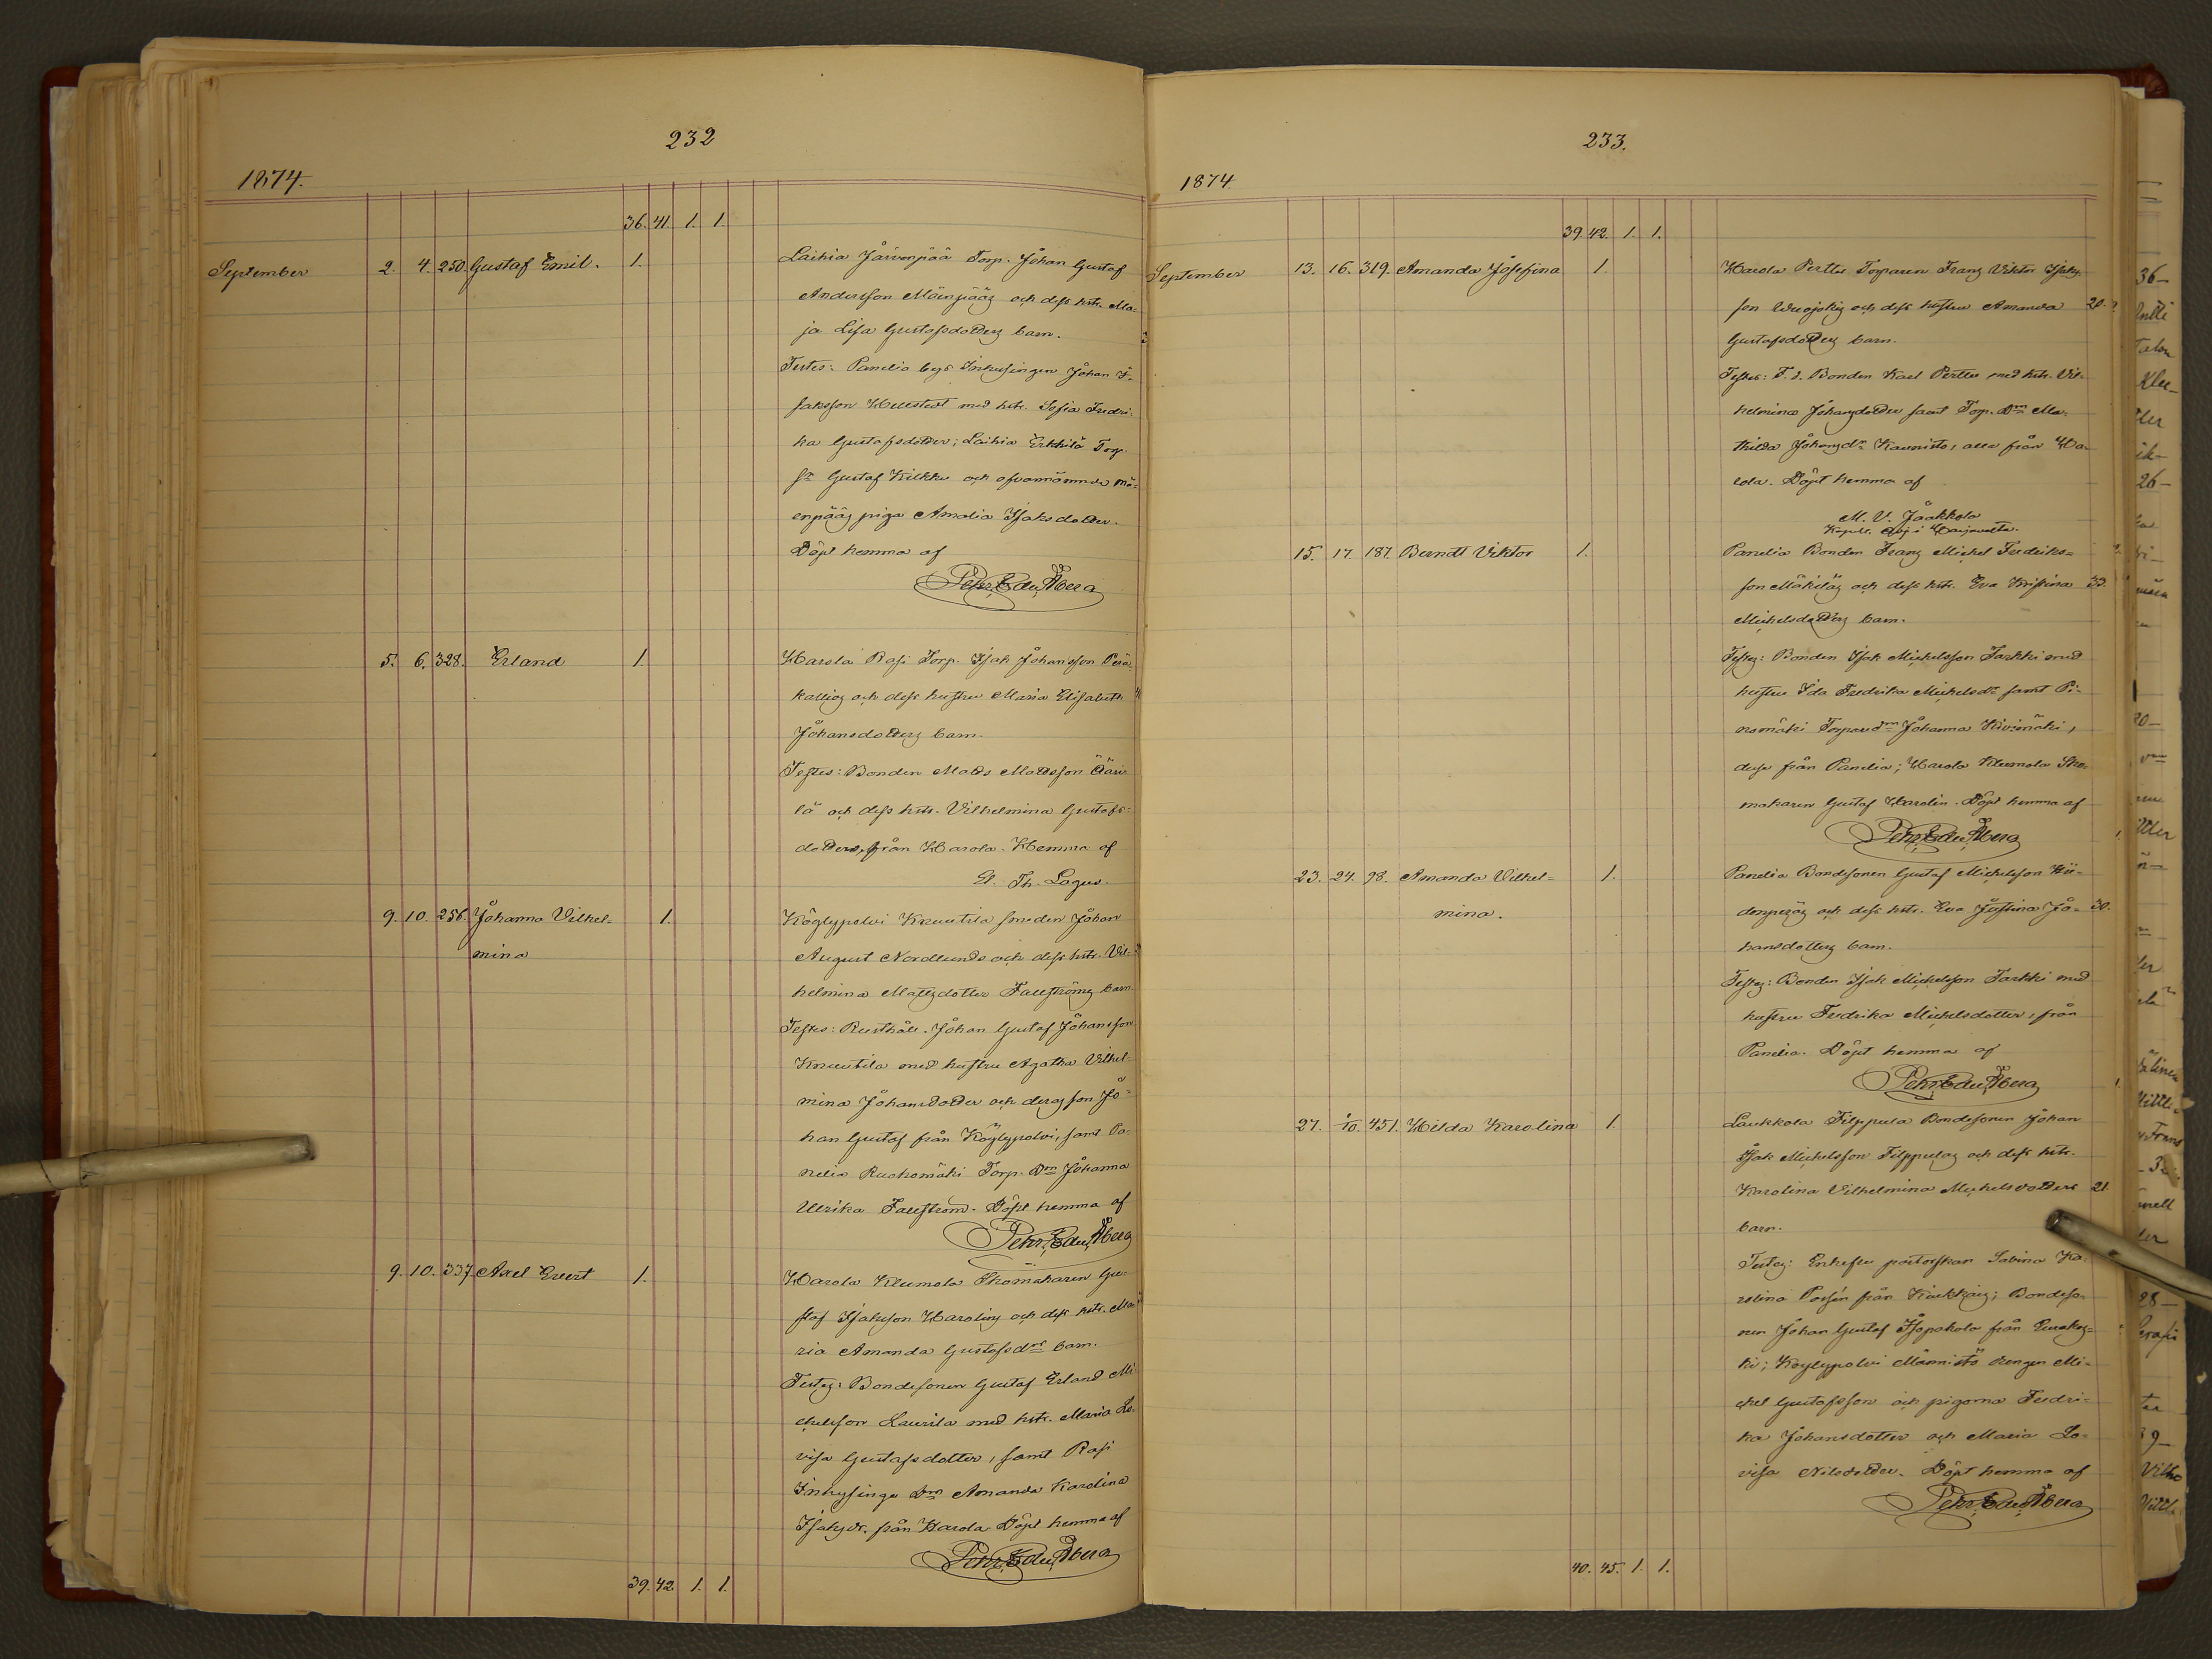 232
1874.
36. 41. 1. 1.
September 2. 4. 250. Gustaf Emil. 1. Laihia Järvenpää Torp. Johan Gustaf
Andersson Mäenpääs och dess hstr. Ma=
ja Lisa Gustafsdotters barn.
Testes: Panelia bys Inhysingen Johan I=
saksson Hellstedt med hstr. Sofia Fredri=
ka Gustafsdotter; Laihia Erkkilä Torp.
Gustaf Kilkku och ofvannämnda Mä=
enpääs piga Amalia Isaksdotter.
Döpt hemma af
Pehr Edu. Åberg
5. 6. 328. Erland 1. Harola Rasi Torp. Isak Johansson Perä=
kallios och dess hustru Maria Elisabeth
Johansdotters barn.
Testes: Bonden Matts Mattsson Ääri=
lä och dess hstr. Vilhelmina Gustafs=
dotter, från Harola. Hemma af
Th. Lagus.
9. 10. 256. Johanna Vilhel= 1. Köylypolvi Knuutila smeden Johan
mina August Nordlunds och dess hstr. Vil=
helmina Mattsdotter Fallströms barn.
Testes: Rusthåll. Johan Gustaf Johansson
Knuutila med hustru Agatha Vilhel=
mina Johansdotter och deras son Jo=
han Gustaf från Köylypolvi, samt Pa=
nelia Ruohomäki Torp. Dr Johanna
Ulrika Fallström. Döpt hemma af
Pehr Edu. Åberg
9. 10. 337. Axel Evert 1. Harola Klemola Skomakaren Gu=
staf Isaksson Harolins och dess hstr. Ma=
ria Amanda Gustafsdrs barn.
Testes: Bondesonen Gustaf Erland Mi=
chelsson Laurila med hstr. Maria Lo=
visa Gustafsdotter, samt Rasi
Inhysinge Dr Amanda Karolina
Isaksdr. från Harola. Döpt hemma af
Pehr Edu. Åberg
39. 42. 1. 1.
233.
1874.
39. 42. 1. 1.
September 13. 16. 319. Amanda Josefina 1. Harola Perttu Torparen Frans Viktor Isaks=
son Vuojokis och dess hustru Amanda 20.
Gustafsdotters barn.
Testes: F. d. Bonden Karl Perttu med hstr. Vil=
helmina Johansdotter samt Torp. Dr Ma=
thilda Johansdr Kaunisto, alla från Ha=
rola. Döpt hemma af
M. V. Jaakkola
Kapell. Adj. i Harjavalta.
15. 17. 187. Berndt Viktor 1. Panelia Bonden Frans Michel Fredriks=
son Mäkiläs och dess hstr. Eva Kristina 33.
Michelsdotters barn.
Testes: Bonden Isak Michelsson Tarkki med
hustru Ida Fredrika Michelsdr samt Pi=
nomäki Torpare Dr Johanna Kivimäki,
dessa från Panelia; Harola Klemola Sko=
makaren Gustaf Harolin. Döpt hemma af
Pehr Edu. Åberg
23. 24. 98. Amanda Vilhel= 1. Panelia Bondesonen Gustaf Michelsson Hii=
mina. denperäs och dess hstr. Eva Justina Jo= 30.
hansdotters barn.
Testes: Bonden Isak Michelsson Tarkki med
hustru Fredrika Michelsdotter, från
Panelia. Döpt hemma af
Pehr Edu. Åberg
27. 1/10. 451. Hilda Karolina 1. Laukkola Filppula Bondesonen Johan
Isak Michelsson Filppulas och dess hstr.
Karolina Vilhelmina Michelsdotters 21.
barn.
Testes: Enkefru pastorskan Sabina Ka=
rolina från Kiukkais; Bondeso=
nen Johan Gustaf Isopahola från Euraks=
ki; Köylypolvi Männistö drengen Mi=
chel Gustafsson och pigorna Fredri=
ka Johansdotter och Maria Lo=
visa Nilsdotter. Döpt hemma af
Pehr Edu. Åberg
40. 45. 1. 1.